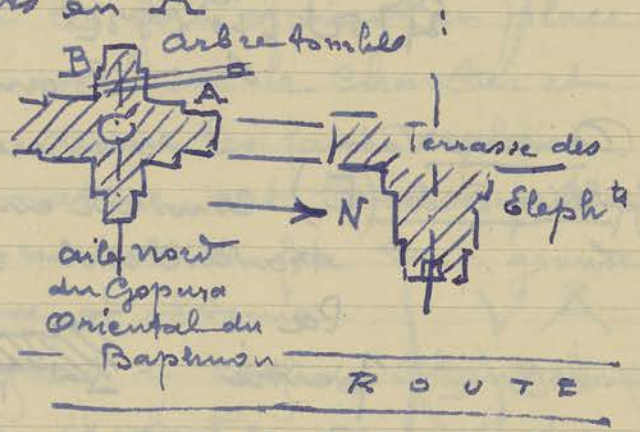 en
arbre tombé
B
A
C
Terrasse des
Elephts
N
aile nord
du Gopura
Oriental du
Baphuon
ROUTE